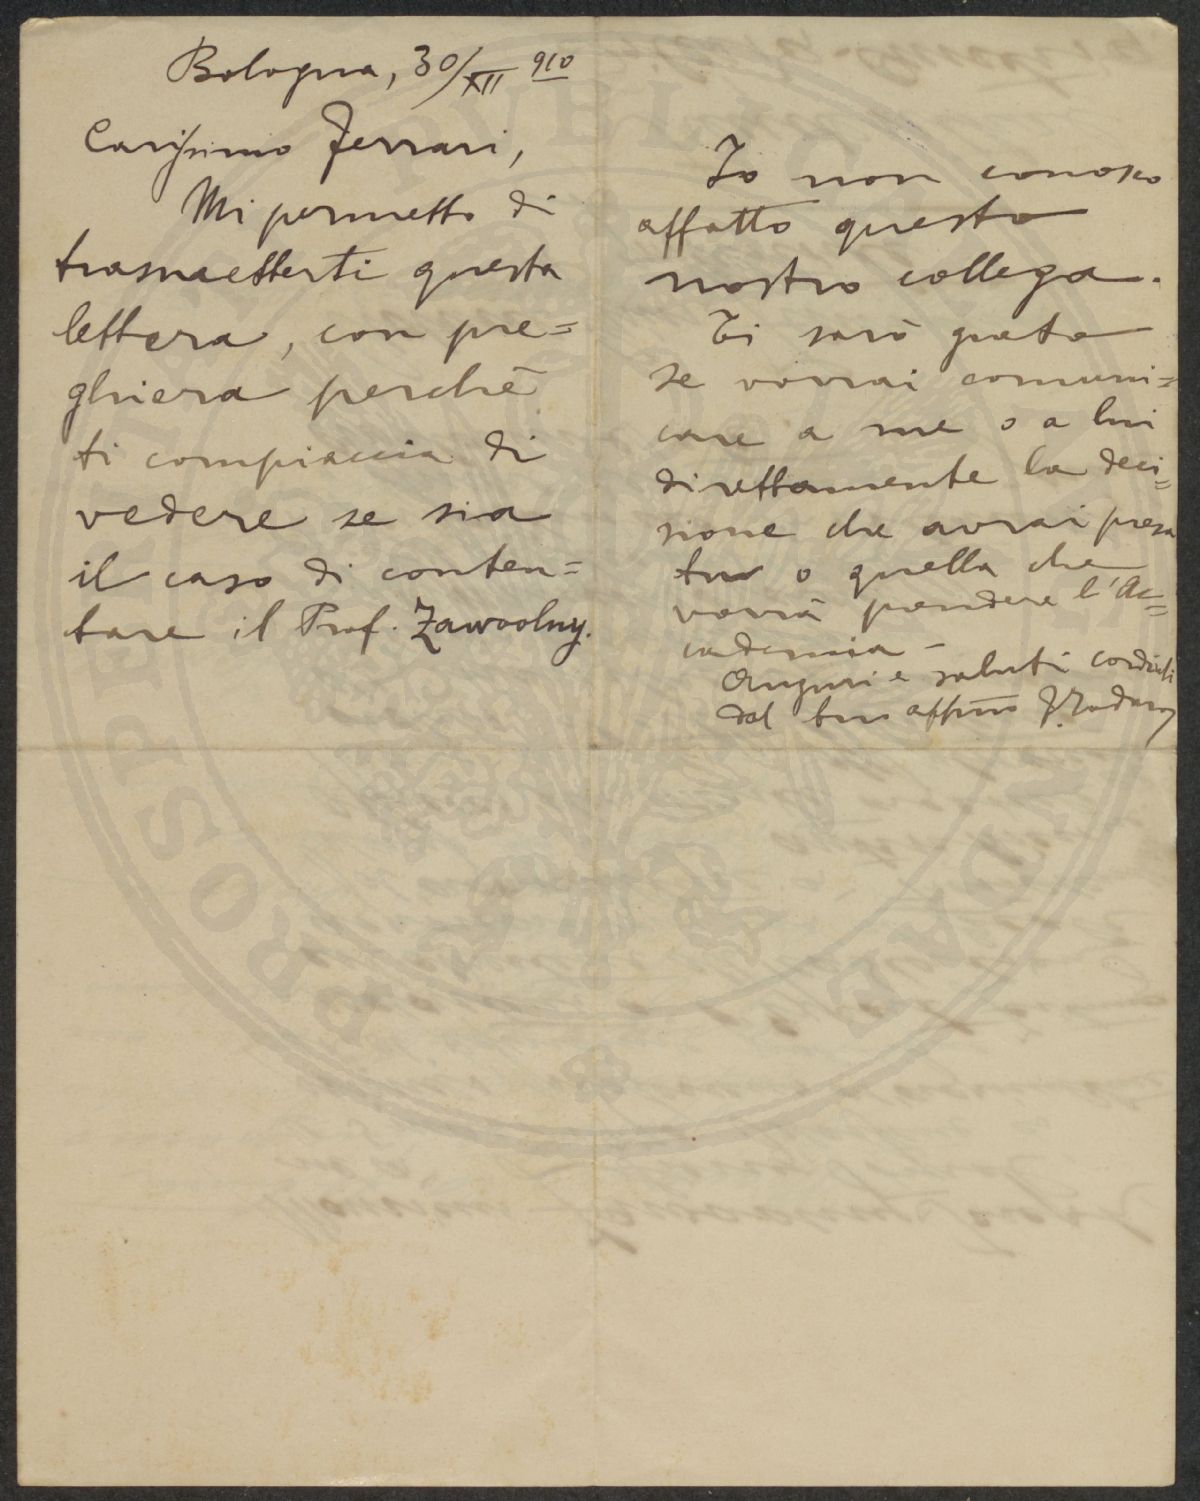 Bologna, 30/XII 910
Carissimo Ferrari,
Mi permetto di
trasmetterti questa
lettera, con pre=
ghiera perchè
ti compiaccia di
vedere se sia
il caso di conten=
tare il Prof. Zawoolny.
Io non conosco
affatto questo
nostro collega.
Ti sarò grato
se vorrai comuni=
care a me o a lui
direttamente la deci=
sione che avrai presa
tu o quella che
vorrà prendere l'Ac=
cademia -
Auguri e saluti cordiali
dal tuo affmo